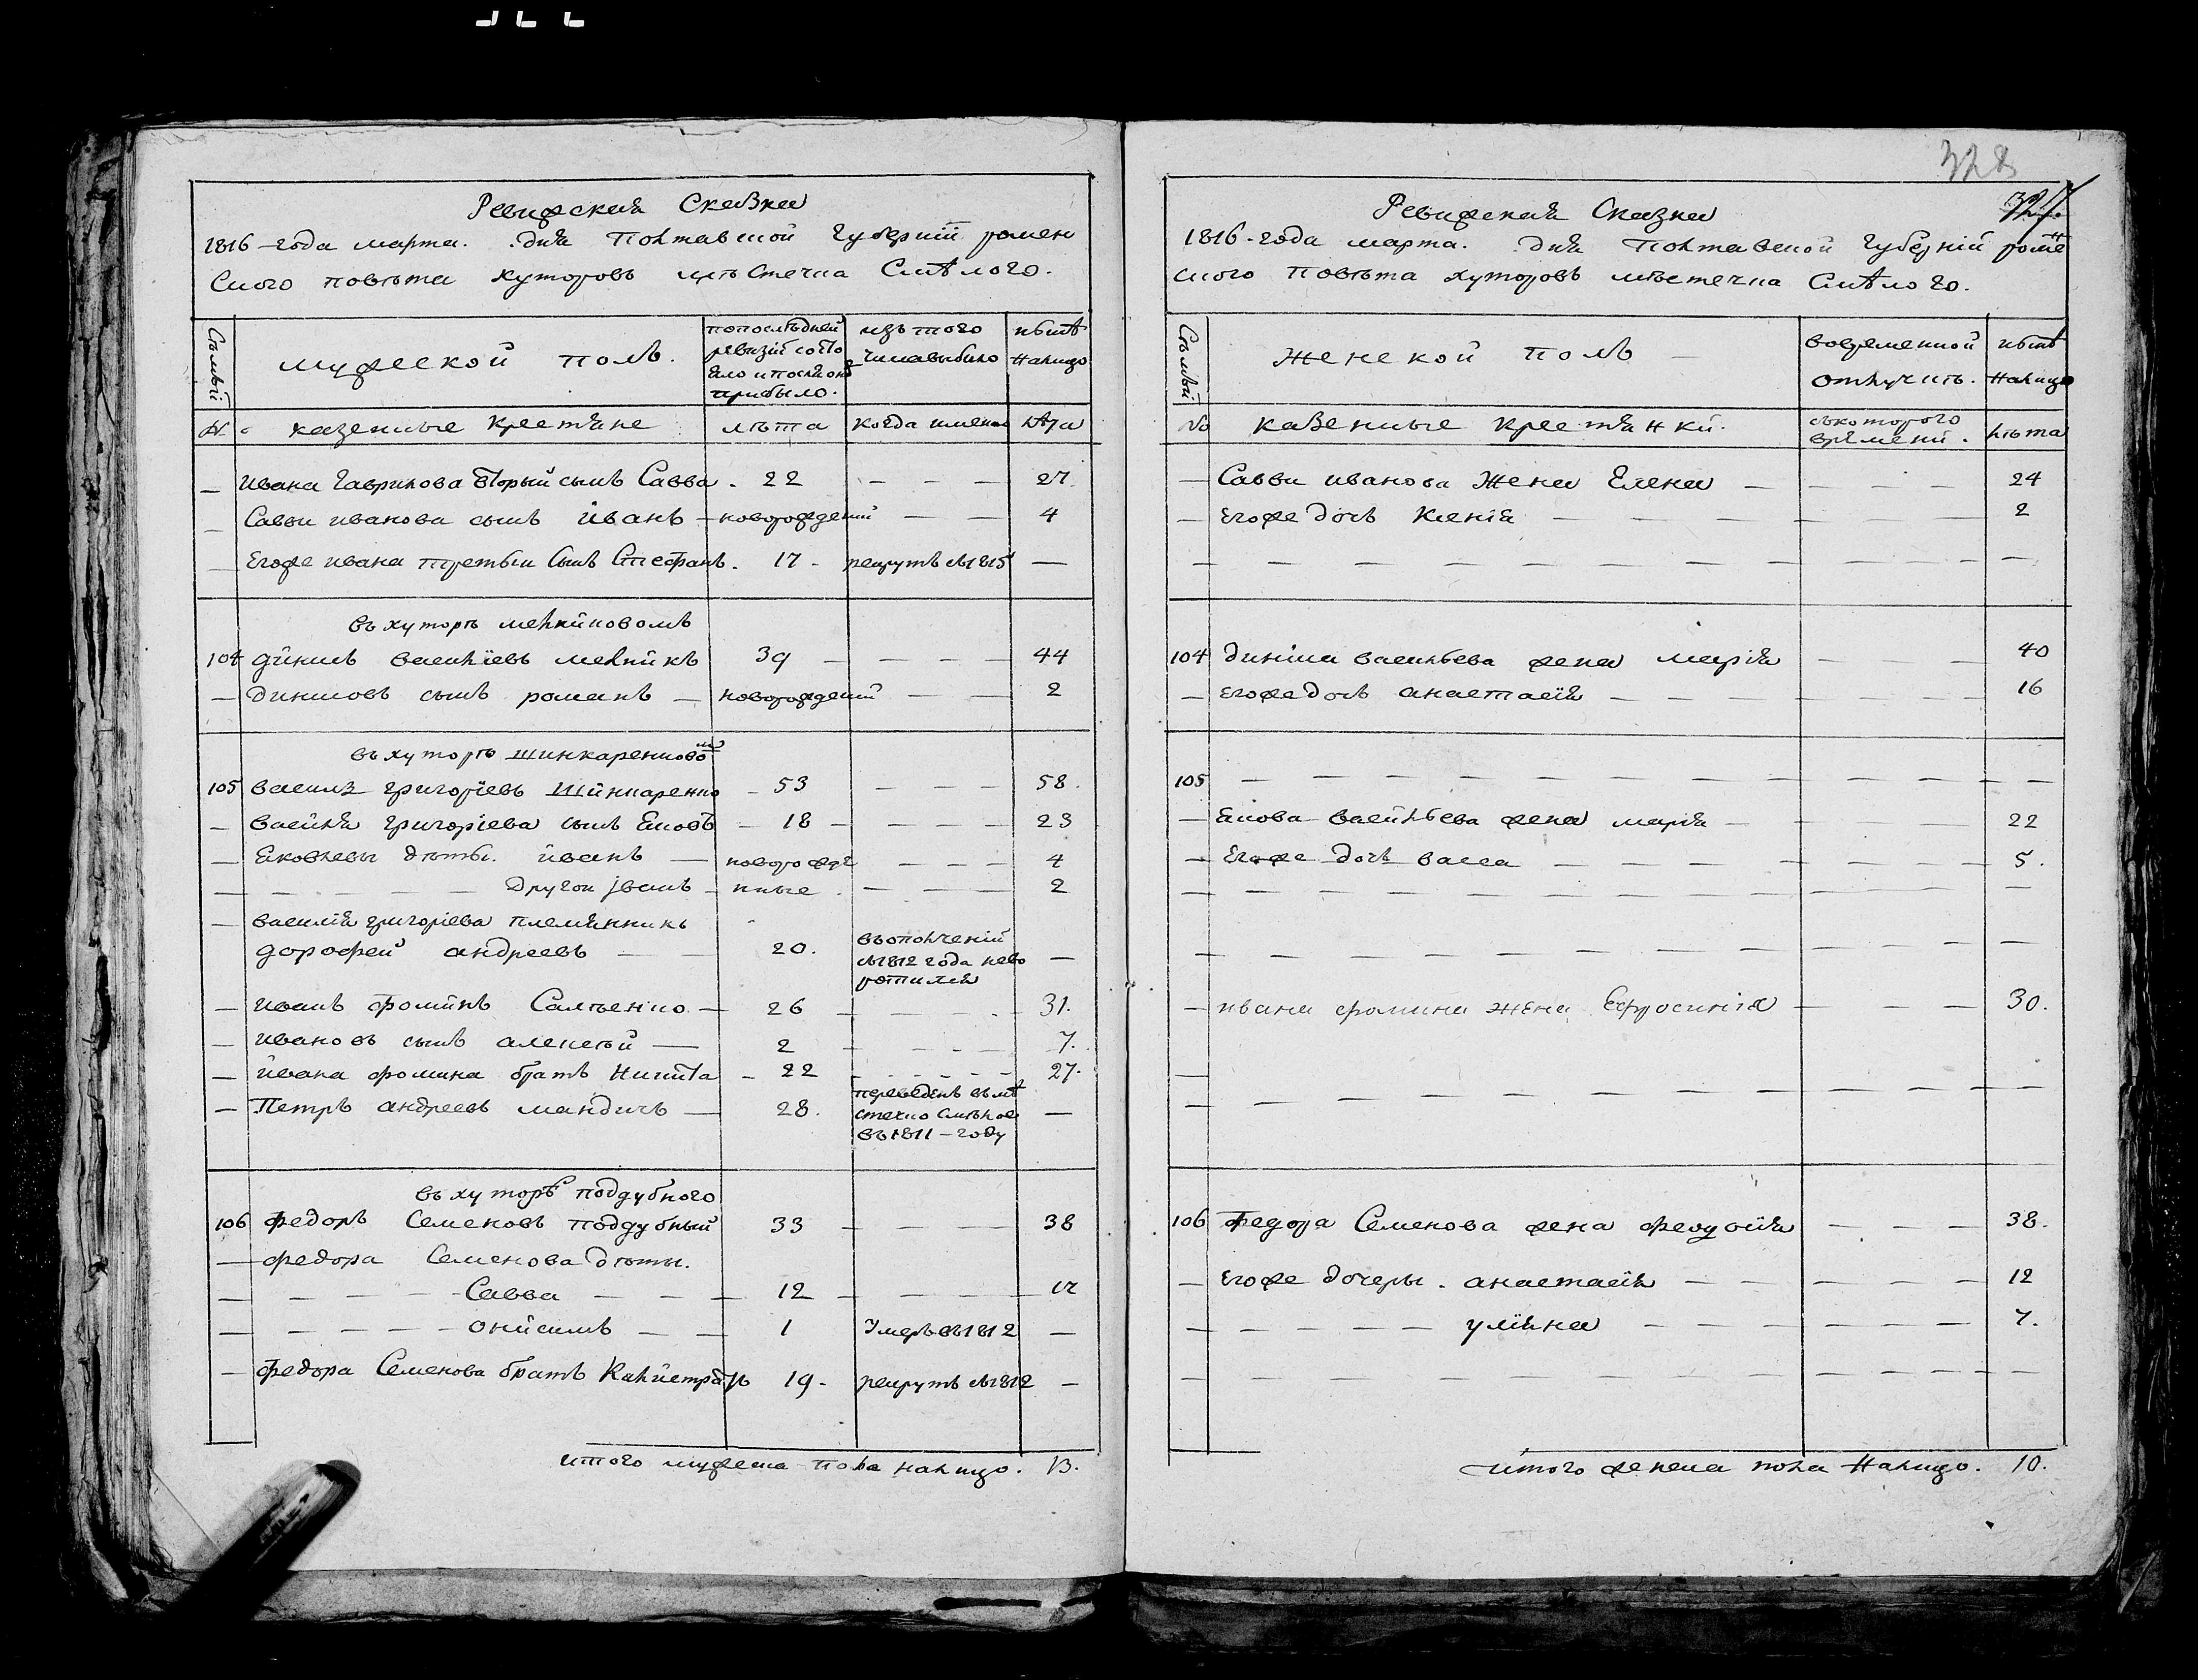 Ревижская Сказка
1816-года марта. дня Полтавской Губерніи ромен
ского повѣта хуторовъ мѣстечка Смѣлого.
Сѣмьй
мужеской полъ.
попослѣдней
ревизій состо
яло ипослѣ онѣ
прибыло.
изъ того
числавыбило
нынѣ
налицо
№
казенные крестяне
лѣта
когда имено
лѣта
— Ивана Гаврилова вторый сынъ Савва - 22 — — — 27.
— Савви иванова сынъ иванъ — новорожденій — — 4
— Егоже ивана третьи сынъ Стефанъ. 17 - рекрутѣ съ1815 —
въ хуторѣ мелниковомъ
104 дйнисъ василіевъ мелникъ 39 — — — — 44
— динисовъ сынъ романъ — новорожденій — — 2
въ хуторѣ шинкаренково м
105 василь григоріевъ Шинкаренко — 53 — — — 58.
— василя григоріева сынъ Яковъ — 18 — — — — 23
— Яковлевы дѣты. иванъ — новорожде — — — 4
— — — — — другои іванъ — нные. — — — 2
— василія григоріева племянникъ
дорофей андреевъ — — 20.
въополченій
съ1812 года нево
ротился
—
— иванъ фоминъ Саленко — 26 — — — — 31.
— ивановъ сынъ алексѣй — 2 — — — — 7.
— ивана фомина братъ Никита — 22 — — — — 27.
— Петръ андреевъ мандичъ — 28.
переведенъ въмѣ
стечко смѣлое
въ1811-году
—
въ хуторѣ поддубного
106 федоръ Семеновъ поддубный 33 — — — 38
— федора Семенова дѣты.
— — — — — Савва — — — 12 — — — — 17
— — — — — онисимъ — — 1 Умеръ въ1812 —
— федора Семенова братъ Калистратъ 19- рекрутъ съ1812 —
итого мужеска пола налицо. 13.
328
327.
Ревижская Сказка
1816-года марта. дня Полтавской губерній роме н
ского повѣта хуторовъ мѣстечка Смѣлого.
Сѣмьй
женской полъ —
вовременной
отлучкѣ.
нынѣ
Налицо
№
казенные крестянкй.
съкоторого
времени.
лѣта
— Савви иванова Жена Елена — — — — 24
— Егоже дочь Ксенія — — — — — — 2
— — — — — — — — — — — —
104 диниса васильева жена марія — — — 40
— Егоже дочь анастасія — — — — — — 16
105 — — — — — — — — — — — —
— Якова васильева жена марія — — — 22
— Егоже дочь васса — — — — — — 5.
— — — — — — — — — — — —
— — — — — — — — — — — —
— ивана фомина жена Ефросинія — — — 30.
—
— — — — — — — — — — — —
106 федора Семенова жена феодосія — — — 38.
— Егоже дочеры. анастасія — — — — — 12
— — — — — — уляна — — — — — — 7.
— — — — — — — — — — — —
итого женска пола Налицо. 10.